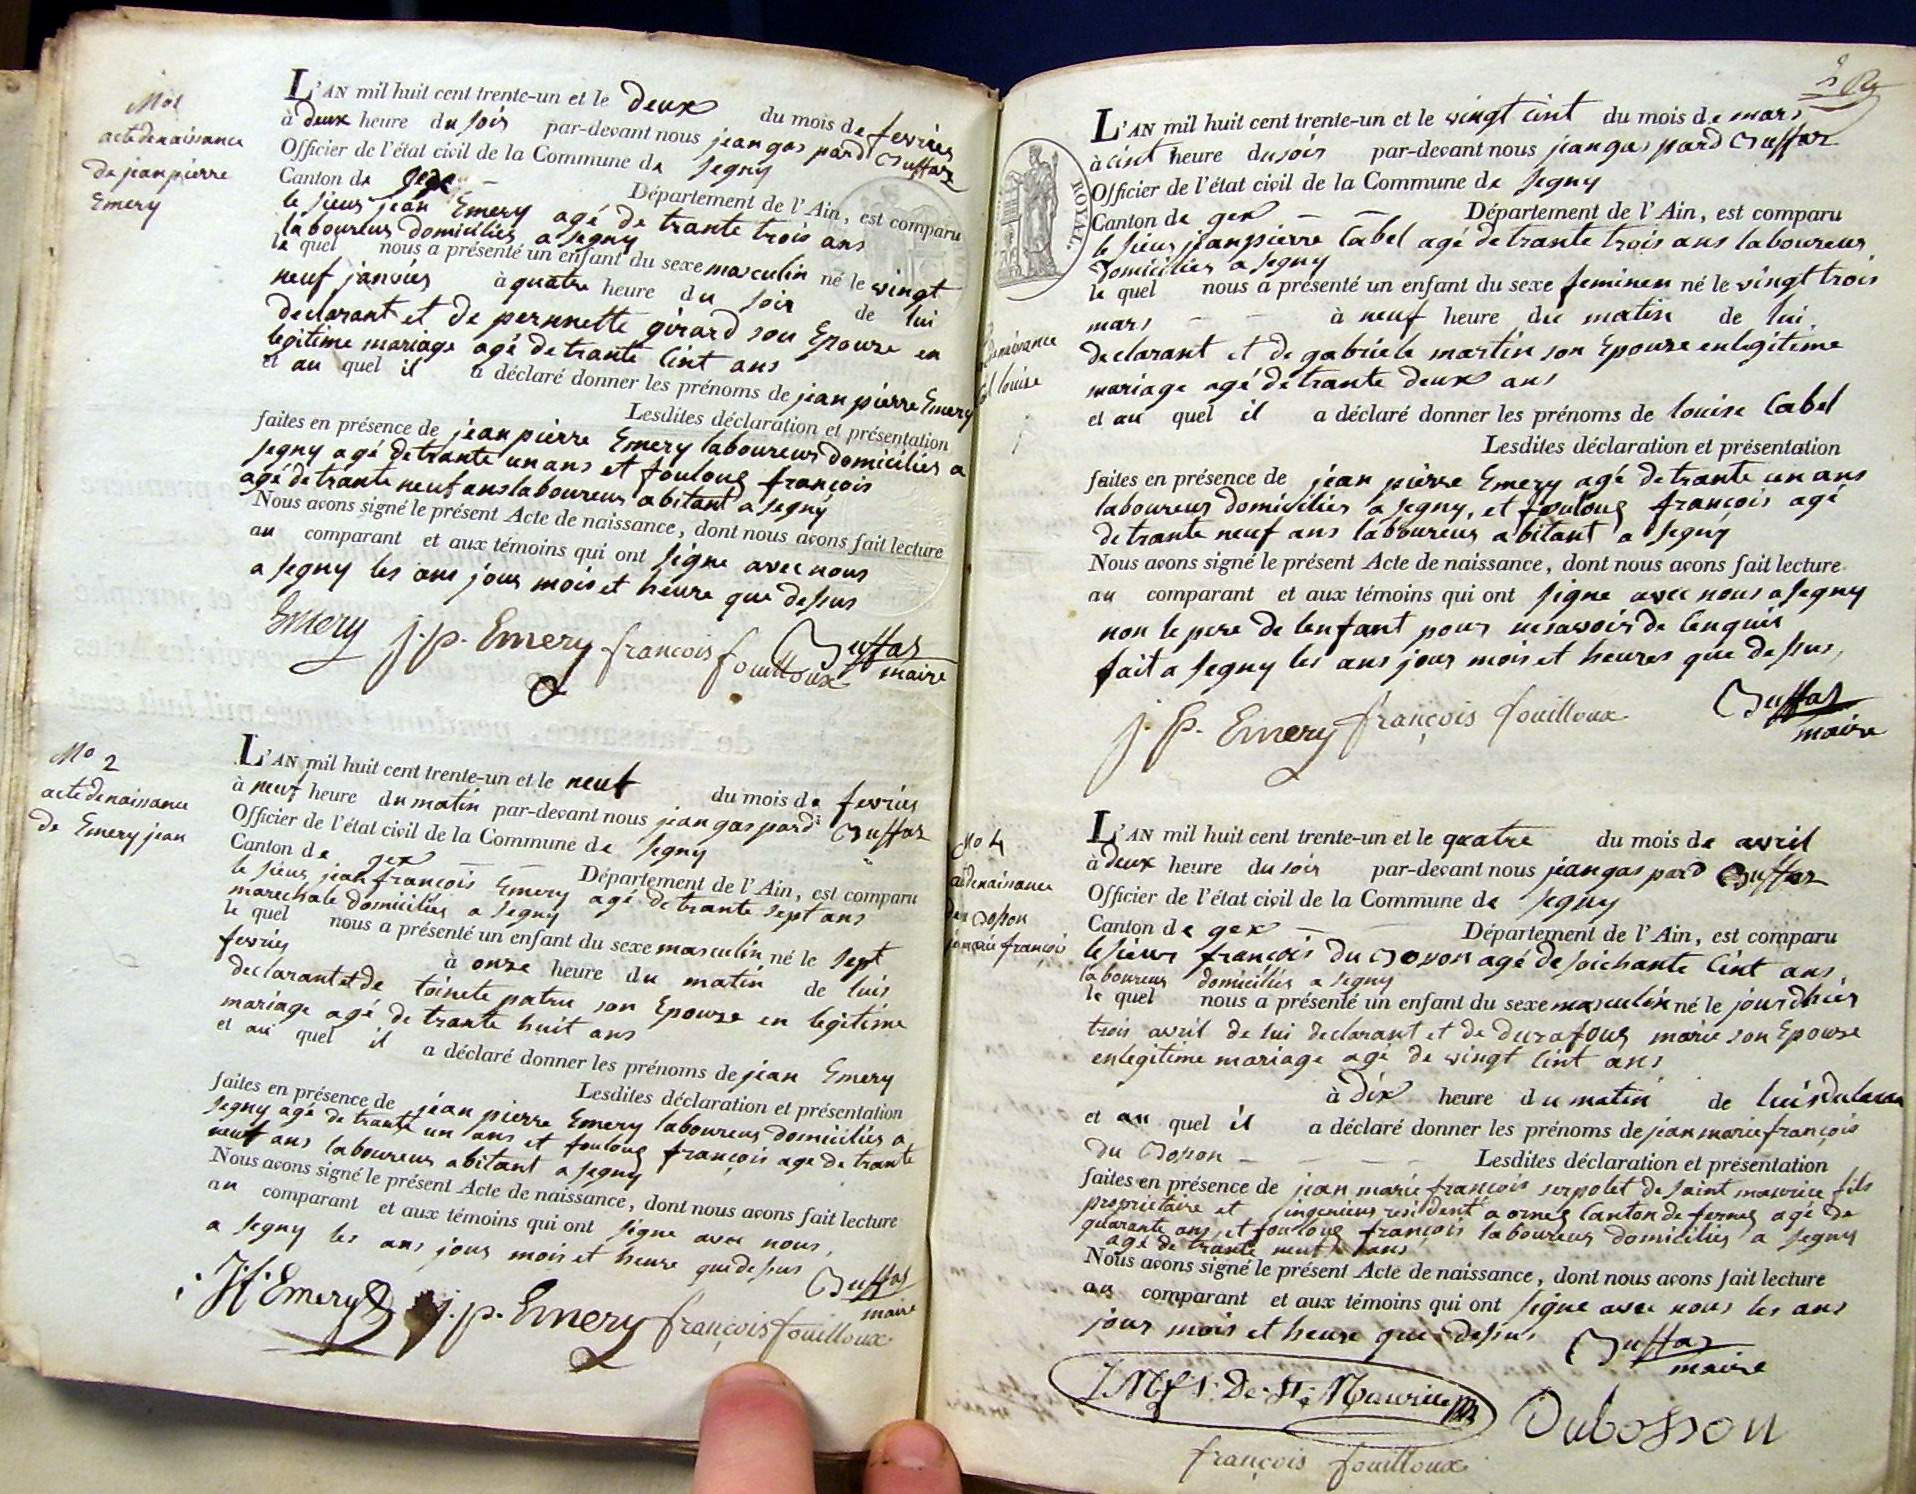 No 1
acte de naissance
de jean pierre
Emery
L'AN mil huit cent trente-un et le deux du mois de fevrier
à deux heure du soir par-devant nous jean gas pard Buffaz
Officier de l'état civil de la Commune de Segny
Canton de gex Département de l'Ain, est comparu
le sieur jean Emery agé de trante trois ans
laboureur domicilier a Segny
le quel nous a présenté un enfant du sexe masculin né le vingt
neuf janvier à quatre heure du soir de lui
declarant et de pernnette girard son Epouze en
legitime mariage agé de trante Cint ans
et au quel il a déclaré donner les prénoms de jean pierre Emery
Lesdites déclaration et présentation
faites en présence de jean pierre Emery laboureur domicilier a
Segny agé de trante un ans et fouloug françois
agé de trante neuf ans laboureur abitant a Segny
Nous avons signé le présent Acte de naissance, dont nous avons fait lecture
au comparant et aux témoins qui ont signe avec nous
a Segny les ans jour mois et heure que dessus
Emery j. p. Emery françois fouilloux Buffaz
maire
No 2
acte de naissance
de Emery jean
L'AN mil huit cent trente-un et le neuf du mois de fevrier
à neuf heure du matin par-devant nous jean gas pard Buffaz
Officier de l'état civil de la Commune de Segny
Canton de gex Département de l'Ain, est comparu
le sieur jean françois Emery agé de trante sept ans
marechale domicilier a Segny
le quel nous a présenté un enfant du sexe masculin né le sept
fevrier à onze heure du matin de luis
declarant et de toinete patru son Epouze en legitime
mariage agé de trante huit ans
et au quel il a déclaré donner les prénoms de jean Emery
Lesdites déclaration et présentation
faites en présence de jean pierre Emery laboureur domicilier a
Segny agé de trante un ans et fouloug françois age de trante
neuf ans laboureur abitant a Segny
Nous avons signé le présent Acte de naissance, dont nous avons fait lecture
au comparant et aux témoins qui ont signe avec nous,
a Segny les ans jour mois et heure que dessus
Buffaz
maire
Emery j. p. Emery françois fouilloux
2
ROYAL.
denaissance
louise
L'AN mil huit cent trente-un et le vingt cint du mois de mars
à cint heure du soir par-devant nous jean gas pard Buffaz
Officier de l'état civil de la Commune de Segny
Canton de gex Département de l'Ain, est comparu
le sieur jean pierre Cabel agé de trante trois ans laboureur
domicilier a Segny
le quel nous a présenté un enfant du sexe feminen né le vingt trois
mars à neuf heure du matin de lui
declarant et de gabriele martin son Epouze en legitime
mariage agé de trante deux ans
et au quel il a déclaré donner les prénoms de louise Cabel
Lesdites déclaration et présentation
faites en présence de jean pierre Emery agé de trante un ans
laboureur domicilier a Segny, et fouloug françois agé
de trante neuf ans laboureur abitant a Segny
Nous avons signé le présent Acte de naissance, dont nous avons fait lecture
au comparant et aux témoins qui ont signe avec nous a Segny
non le pere de lenfant pour
fait a Segny les ans jour mois et heures que dessus,
j. p. Emery françois fouilloux Buffaz
maire
No 4
denaissance
du Boson
françois
L'AN mil huit cent trente-un et le quatre du mois de avril
à deux heure du soir par-devant nous jean gas pard Buffaz
Officier de l'état civil de la Commune de Segny
Canton de gex Département de l'Ain, est comparu
le sieur françois du Boson agé de soichante Cint ans,
laboureur domicilier a Segny
le quel nous a présenté un enfant du sexe masculin né le jour dhier
trois avril de lui declarant et de durafoug marie son Epouse
en legitime mariage agé de vingt Cint ans
à dix heure du matin de
et au quel il a déclaré donner les prénoms de jean marie françois
du Boson Lesdites déclaration et présentation
faites en présence de jean marie françois serpolet de saint maurice fils
proprietaire et ingenieur resident a ornex Canton de fernex agé de
quarante ans, et fouloug françois laboureur domicilier a Segny
agé de trante neuf ans
Nous avons signé le présent Acte de naissance, dont nous avons fait lecture
au comparant et aux témoins qui ont signe avec nous les ans
jour mois et heure que dessus Buffaz
maire
De St Maurice
Dubosson
françois fouilloux